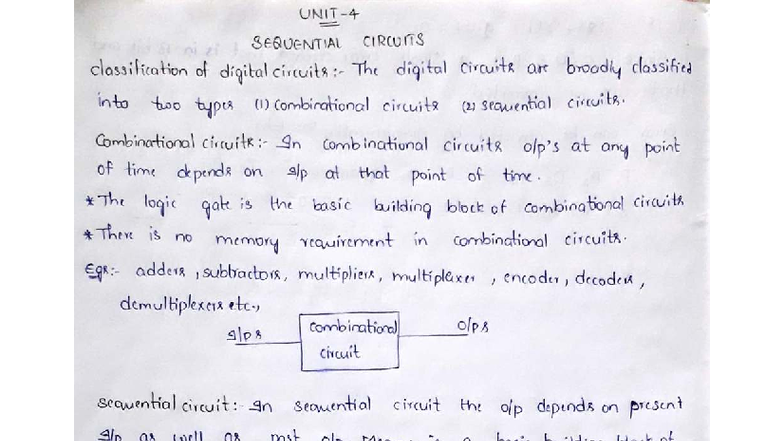 UNIT-4
SEQUENTIAL CIRCUITS
classification of digital circuits:- The digital circuits are broadly classified
into two types (1) combinational circuits (2) sequential circuits.
Combinational circuits:- In combinational circuits o/p's at any point
of time depends on I/p at that point of time.
* The logic gate is the basic building block of combinational circuits
* There is no memory requirement in combinational circuits.
Egs:- adders, subtractors, multipliers, multiplexer, encoder, decoders,
demultiplexers etc.,
I/ps combinational circuit O/ps
sequential circuit:- In sequential circuit the o/p depends on present
I/p as well as past o/p